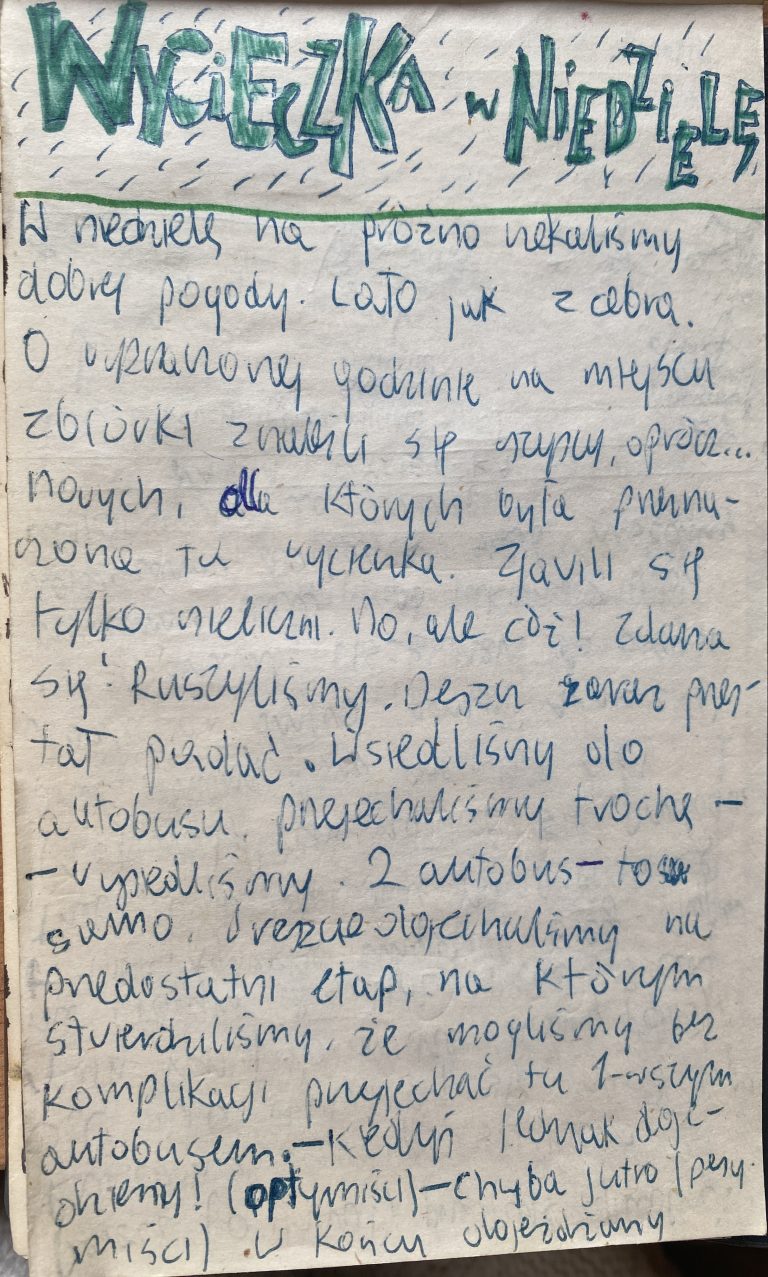 WYCIECZKA W NIEDZIELĘ
W niedzielę na próżno czekaliśmy
dobrej pogody. Lało jak z cebra.
O wyznaczonej godzinie na miejscu
zbiórki znaleźli się wszyscy, oprócz...
nowych, dla których była przezna-
czona ta wycieczka. Zjawili się
tylko nieliczni. No, ale cóż! Zdarza
się! Ruszyliśmy. Deszcz zaraz przes-
tał padać. Wsiedliśmy do
autobusu, przejechaliśmy trochę -
- wysiedliśmy. 2 autobus - to
samo. Wreszcie dojechaliśmy na
przedostatni etap, na którym
stwierdziliśmy, że mogliśmy bez
komplikacji przyjechać tu 1-wszym
autobusem. - Kiedyś jednak doje-
dziemy! (optymiści) - chyba jutro (pesy-
miści) W końcu dojeżdżamy.